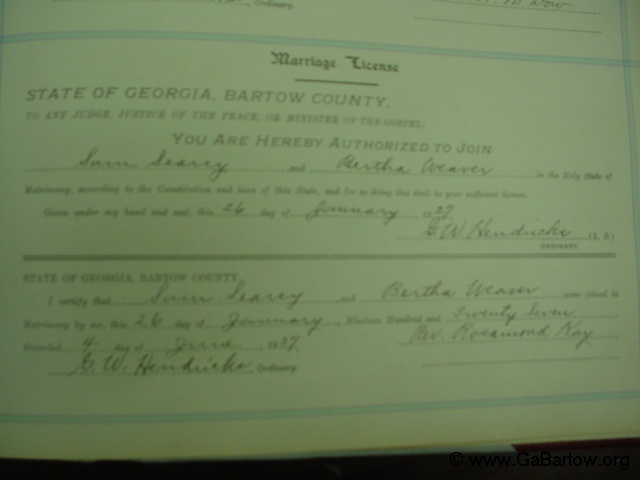 Ordinary.
Marriage License
STATE OF GEORGIA, BARTOW COUNTY.
TO ANY JUDGE, JUSTICE OF THE PEACE, OR MINISTER OF THE GOSPEL:
YOU ARE HEREBY AUTHORIZED TO JOIN
Sam Searcy and Bertha Weaver in the Holy State of
Matrimony, according to the Constitution and laws of this State, and for so doing this shall be your sufficient license.
Given under my hand and seal, this 26 day of January 1927
G. W. Hendricks (L. S.)
ORDINARY.
STATE OF GEORGIA, BARTOW COUNTY.
I certify that Sam Searcy and Bertha Weaver were joined in
Matrimony by me, this 26 day of January, Nineteen Hundred and Twenty Seven
Recorded 4 day of June 1927 Rev. Rosamond Kay
G. W. Hendricks, Ordinary.
© www.GaBartow.org